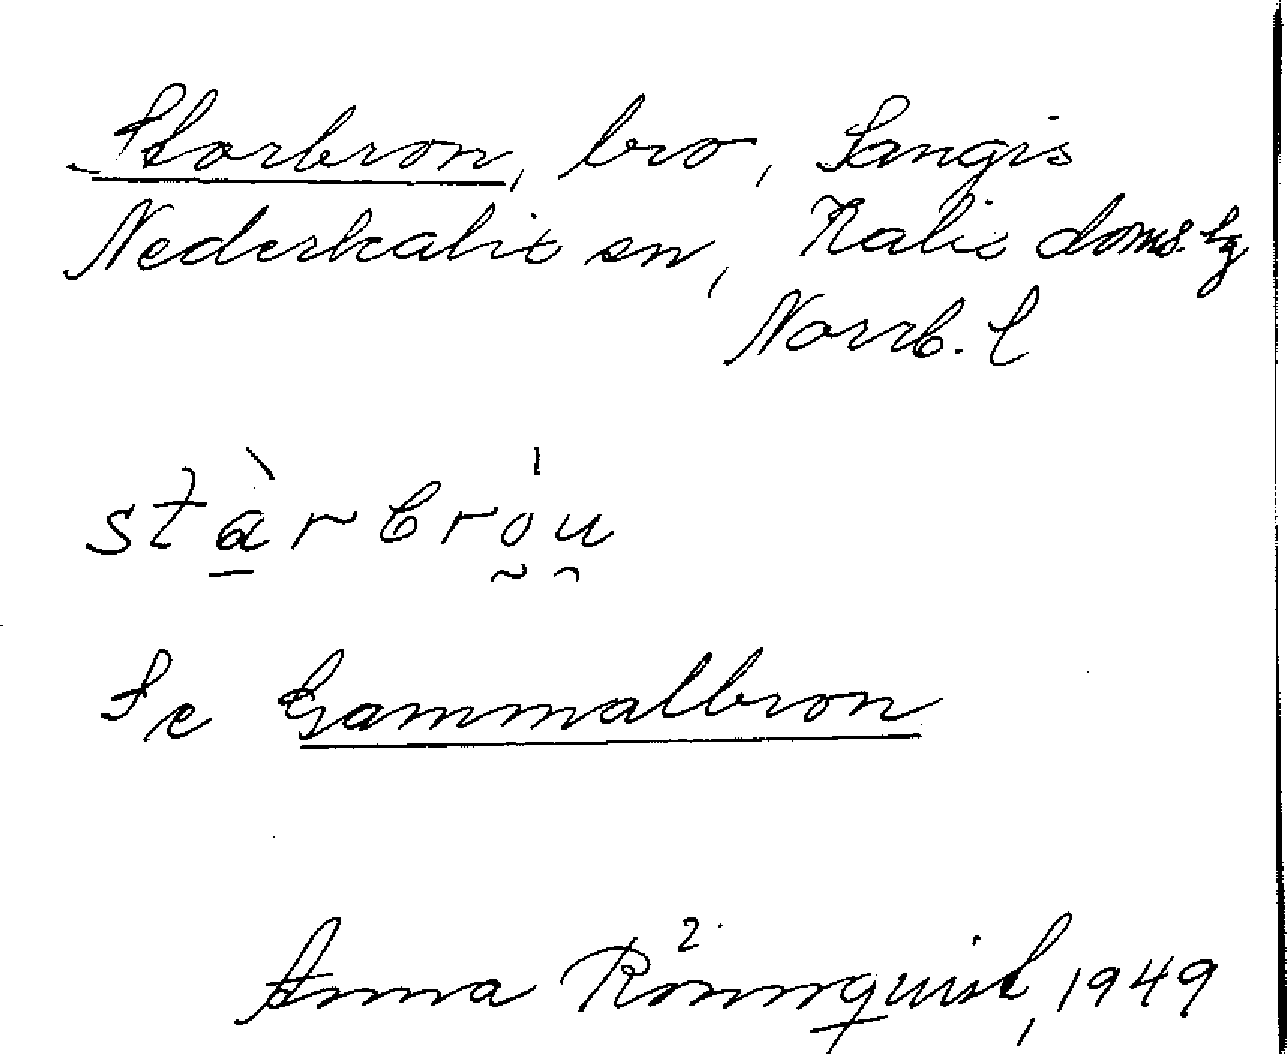 Storbron, bro, Sangis
Nederkalix sn, Kalix doms. lg
Norrb. l
stàrbróu
Se Gammalbron
Anna Rönnquist, 1949